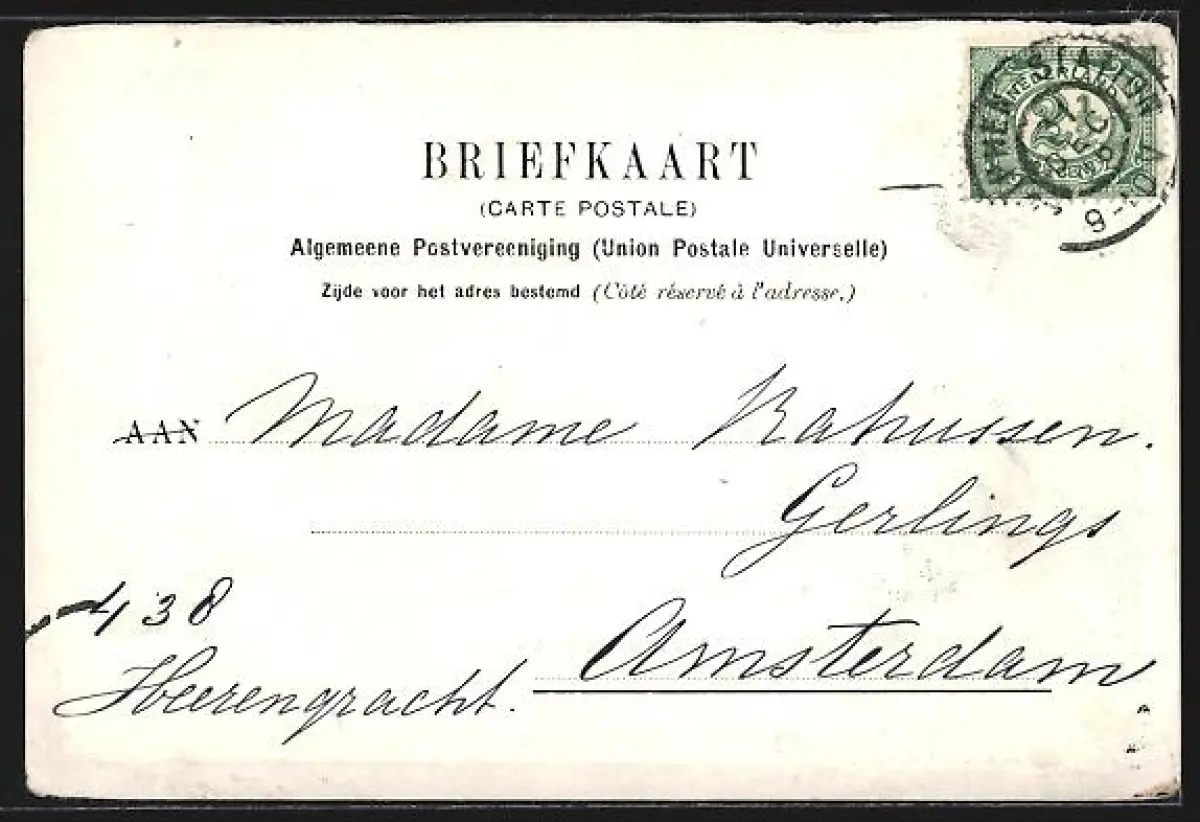 NEDERLAND
2½
STATION
9-10V
BRIEFKAART
(CARTE POSTALE)
Algemeene Postvereeniging (Union Postale Universelle)
Zijde voor het adres bestemd (Côté réservé à l'adresse.)
AAN Madame Rahussen.
Gerlings
Amsterdam
438
Heerengracht.